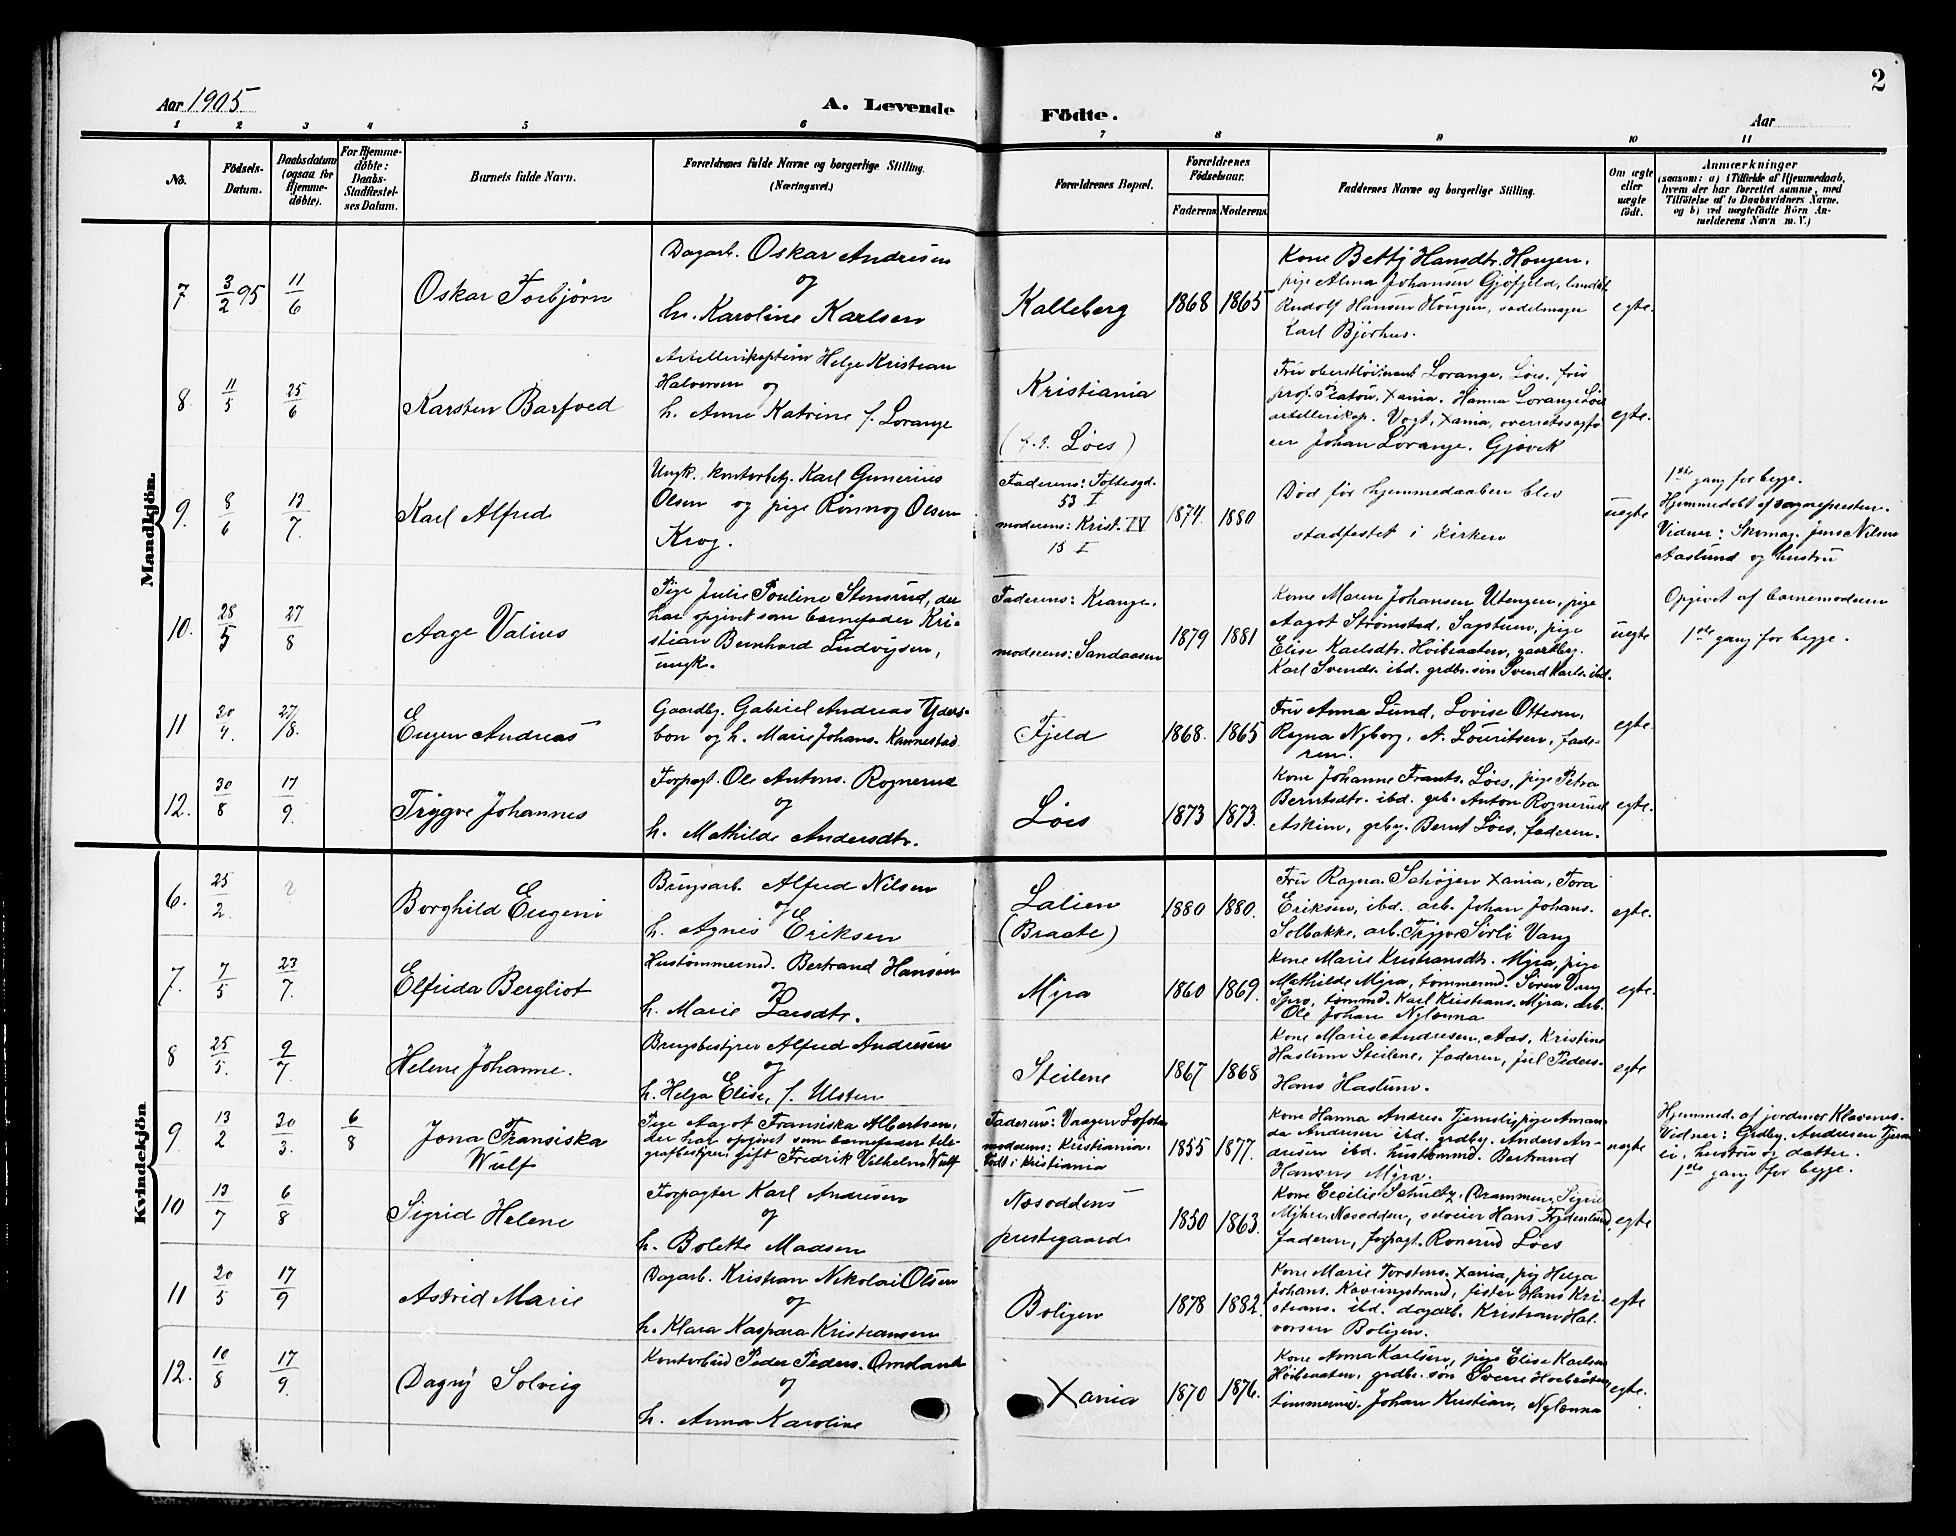 2
Aar 1905
A. Levende
Födte.
Aar
1 2 3 4 5 6 7 8 9 10 11
No.
Födsels-Datum.
Daabsdatum (ogsaa for Hjemmedöbte).
For Hjemmedöbte: Daabs-Stadfæstelses Datum.
Barnets fulde Navn.
Forældrenes fulde Navne og borgerlige Stilling. (Næringsvei.)
Forældrenes Bopæl.
Forældrenes Födselsaar.
Faderens. Moderens.
Faddernes Navne og borgerlige Stilling.
Om ægte eller uægte födt.
Anmærkninger
(saasom: a) i Tilfælde af Hjemmedaab,
hvem der har forrettet samme, med
Tilföielse af to Daabsvidners Navne,
og b) ved uægtefödte Börn Anmelderens Navn m. V.)
Mandkjön.
7 3/2 95 11/6
Oskar Torbjørn
Dagarb. Oskar Andresen
og
h. Karoline Karlsen
Kalleberg
1868 1865
Kone Betty Hansdtr. Hougen,
pige Alma Johansen Gjøfjeld,
Rudolf Hansen Hougen, sadelmager
Karl Bjørhus.
egte.
8. 11/5 25/6
Karsten Barfoed
Artillerikaptein Helge Kristian
Halvorsen og
h. Anne Katrine f. Lorange
Kristiania
Løes)
Fru oberstløitnant Lorange, Løes, fru
prof. Xania. Hanna Lorange Løes
artillerikap. Vogt, Xania, overretssagfø
rer Johan Lorange, Gjøvik
egte.
9. 8/6 13/7.
Karl Alfred
Ungk. kontorbetj. Karl Gunerius
Olsen og pige Rønnog Olsen
Krog.
Faderens: Toftesgd.
53 I
moderens: Krist. IV
15 I
1874. 1880
Død før hjemmedaaben blev
stadfestet i kirken
uegte
1ste gang for begge.
Hjemmedøbt af sogneprsten.
Vidner: Skomag. Jens Nilsen
Aaslund og hustru
10. 28/5 27/8
Aage Valius
Pige Julie Pouline Stensrud, der
har opgivet som barnefader Kri-
stian Bernhard Ludvigsen,
ungk.
Faderens: Krange.
moderens: Sandaasen
1879 1881
Kone Maren Johansen Utengen, pige
Aagot Strømstad, pige
Elise Karlsdtr. Høibraaten, gaardbg.
Karl Svends. ibd. grdbr. søn Svend Karls. ibd.
uegte
Opgivet af barnemoderen
1ste gang for begge.
11 20/4. 27/8.
Eugen Andreas
Gaardbg. Gabriel Andreas
og h. Marie Johans. Kannestad
Fjeld
1868. 1865
Fru Anna Lund, Lovise Ottesen,
Ragna Nyborg, A. Louritsen, fade-
ren.
egte.
12. 30/8 17/9.
Trygve Johannes
Forpagt. Ole Antons. Rognerud
og
h. Mathilde Andersdtr.
Løes
1873 1873.
Kone Johanne Frants. Løes, pige Petra
Berntsdtr. ibd. grb. Anton Rognerud
Askim, grbg. Bernt Løes, faderen.
egte.
Kvindekjön
6. 25/2. ?
Borghild Eugeni
Brugsarb. Alfred Nilsen
og
h. Agnes Eriksen
Lalien
(Braate)
1880 1880.
Fru Ragna Schøjen Xania, Tora
Eriksen, ibd. arb. Johan Johans.
Solbakke, arb. Trygve Sørli Vang
egte.
7. 7/5 23/7.
Elfrida Bergliot
Hustømmermd. Bertrand Hansen
og
h. Marie Larsdtr.
Myra
1860 1869.
Kone Marie Kristiansdtr. Myra, pige
Mathilde Myra, tømmermd. Søren Vang
Spro, tømmd. Karl Kristians. Myra, arb.
Ole Johan Nylænna
egte.
8 25/5. 9/7.
Helene Johanne.
Brugsbestyrer Alfred Andresen
og
h. Helga Elise, f. Ulsten
Steilene
1867 1868
Kone Marie Andresen, Aas, Kristine
Haslum Steilene, faderen, Peders.
Hans Haslum.
egte
9 13/2 30/3. 6/8
Jona Fransiska
Wulf
Pige Aagot Fransiska Albertsen,
der har opgivet som barnefader tele-
grafbestyrer, gift Fredrik Vilhelm Wulf
Faderens: Vaagen Lofoten
moderens: Kristiania.
født i Kristiania
1855 1877.
Kone Hanna Andres. Tjernsli, pige Aman-
da Andersen ibd. grdbg. Anders An-
dresen ibd. hustømmd. Bertrand
Hansens Myra.
uegte
Hjemmed. af jordmor Klavenes.
Vidner: Grdbg. Andresen
hustru og datter.
1ste gang for begge.
10 13/7 6/8
Sigrid Helene
Forpagter Karl Andresen
og
h. Bolette Madsen
Nesoddens
prestegaard
1850 1863.
Kone Cecilie Schultz, Drammen, Sigrid
Myhre, Nesodden, selveier Hans
faderen, forpagt. Ronerud Løes
egte
11 20/5 17/9
Astrid Marie
Dagarb. Kristian Nikolai Olsen
og
h. Klara Kaspara Kristiansen
Boligen
1878 1882.
Kone Marie Torstens. Xania, pig Helga
Johans. Kavringstrand, fisker Hans Kri-
stians. ibd. dagarb. Kristian Hal-
vorsen Boligen.
egte
12. 10/8 17/9.
Dagny Solveig
Kontorbud Peder Peders. Omsland
og
h. Anna Karoline
Xania
1870 1876.
Kone Anna Karlsen, pige Elise Karlsen
Høibraaten, grdbr. søn Sverre Høibraaten,
tømmermd. Johan Kristian, Nylænna
egte.